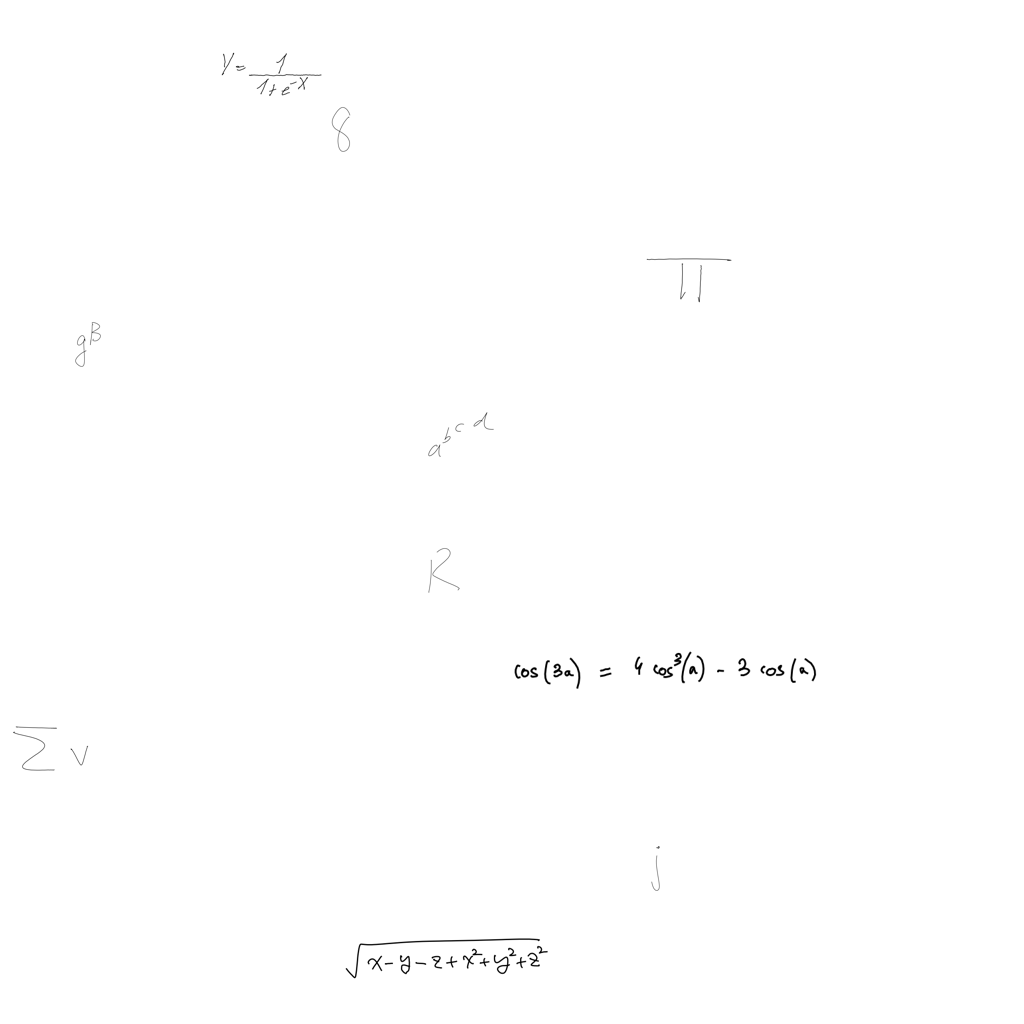 y = \frac{1}{1+e^{-x}}
8
\prod
g^{β}
a^{b^{c^{d}}}
R
cos(3a) = 4 cos^{3}(a) - 3 cos(a)
\sum v
j
\sqrt{x-y-z+x^{2}+y^{2}+z^{2}}